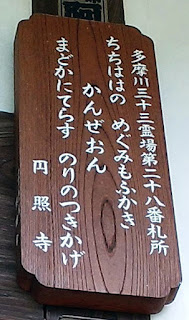 多摩川三十三霊場第二十八番札所
ちちははの　めぐみもふかき
かんぜおん
まどかにてらす　のりのつきかげ
円照寺